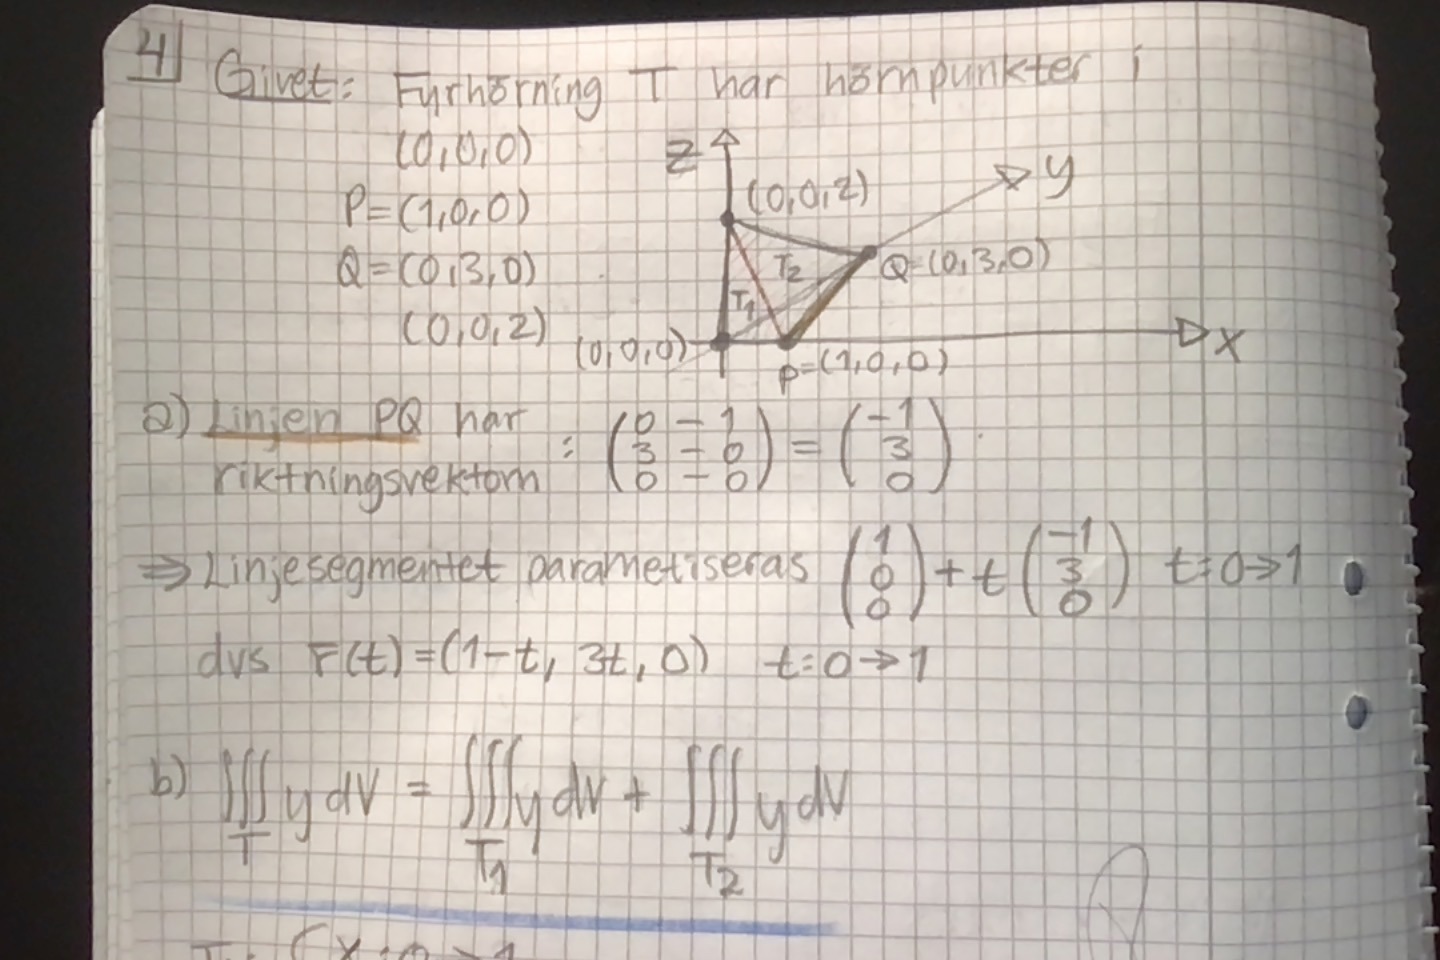 4 Givet: Fyrhörning T har hörnpunkter i
(0,0,0)
P=(1,0,0)
Q=(0,3,0)
(0,0,2)
z
y
(0,0,2)
T2
Q=(0,3,0)
T1
(0,0,0)
x
P=(1,0,0)
a) Linjen PQ har
riktningsvektorn : (0 - 1 3 - 0 0 - 0) = (-1 3 0)
⇒ Linjesegmentet parametiseras (1 0 0) + t (-1 3 0) t:0→1
dvs r(t)=(1-t, 3t, 0) t:0→1
b) ∭T y dV = ∭T1 y dV + ∭T2 y dV